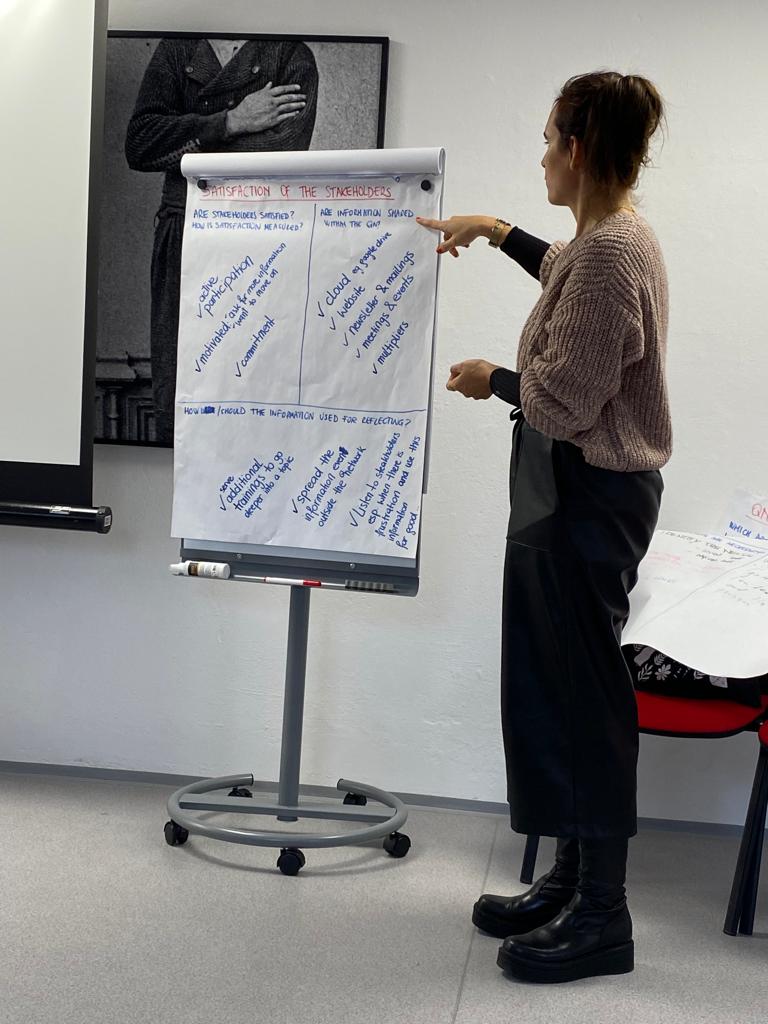 SATISFACTION OF THE STAKEHOLDERS
ARE STAKEHOLDERS SATISFIED?
HOW IS SATISFACTION MEASURED?
✓ active
participation
✓ motivated - ask for more information
- want to move on
✓ commitment
ARE INFORMATION SHARED
WITHIN THE QN?
✓ cloud eg google drive
✓ website
✓ newsletter & mailings
✓ meetings & events
✓ multipliers
HOW /SHOULD THE INFORMATION USED FOR REFLECTING?
✓ serve
additional
trainings to go
deeper into a topic
✓ spread the
information even
outside the network
✓ Listen to steakholders
esp when there is
frustration and use this
information
for good
QN
WHICH
IDENTIFY